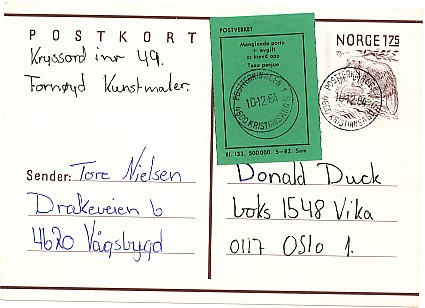 POSTKORT
Kryssord inr 49.
Fornøyd Kunstmaler.
Sender: Tore Nielsen
Drakeveien 6
4620 Vågsbygd
POSTVERKET
Manglende porto
+ avgift
er krevd opp
Taxe perçue
POSTTERMINALEN 1
10.12.84
4600 KRISTIANSAND S
Bl. 133. 500 000. 5-82. Sem
NORGE 125
POSTTERMINALEN 1
10.12.84
4600 KRISTIANSAND S
Donald Duck
boks 1548 Vika
0117 Oslo 1.